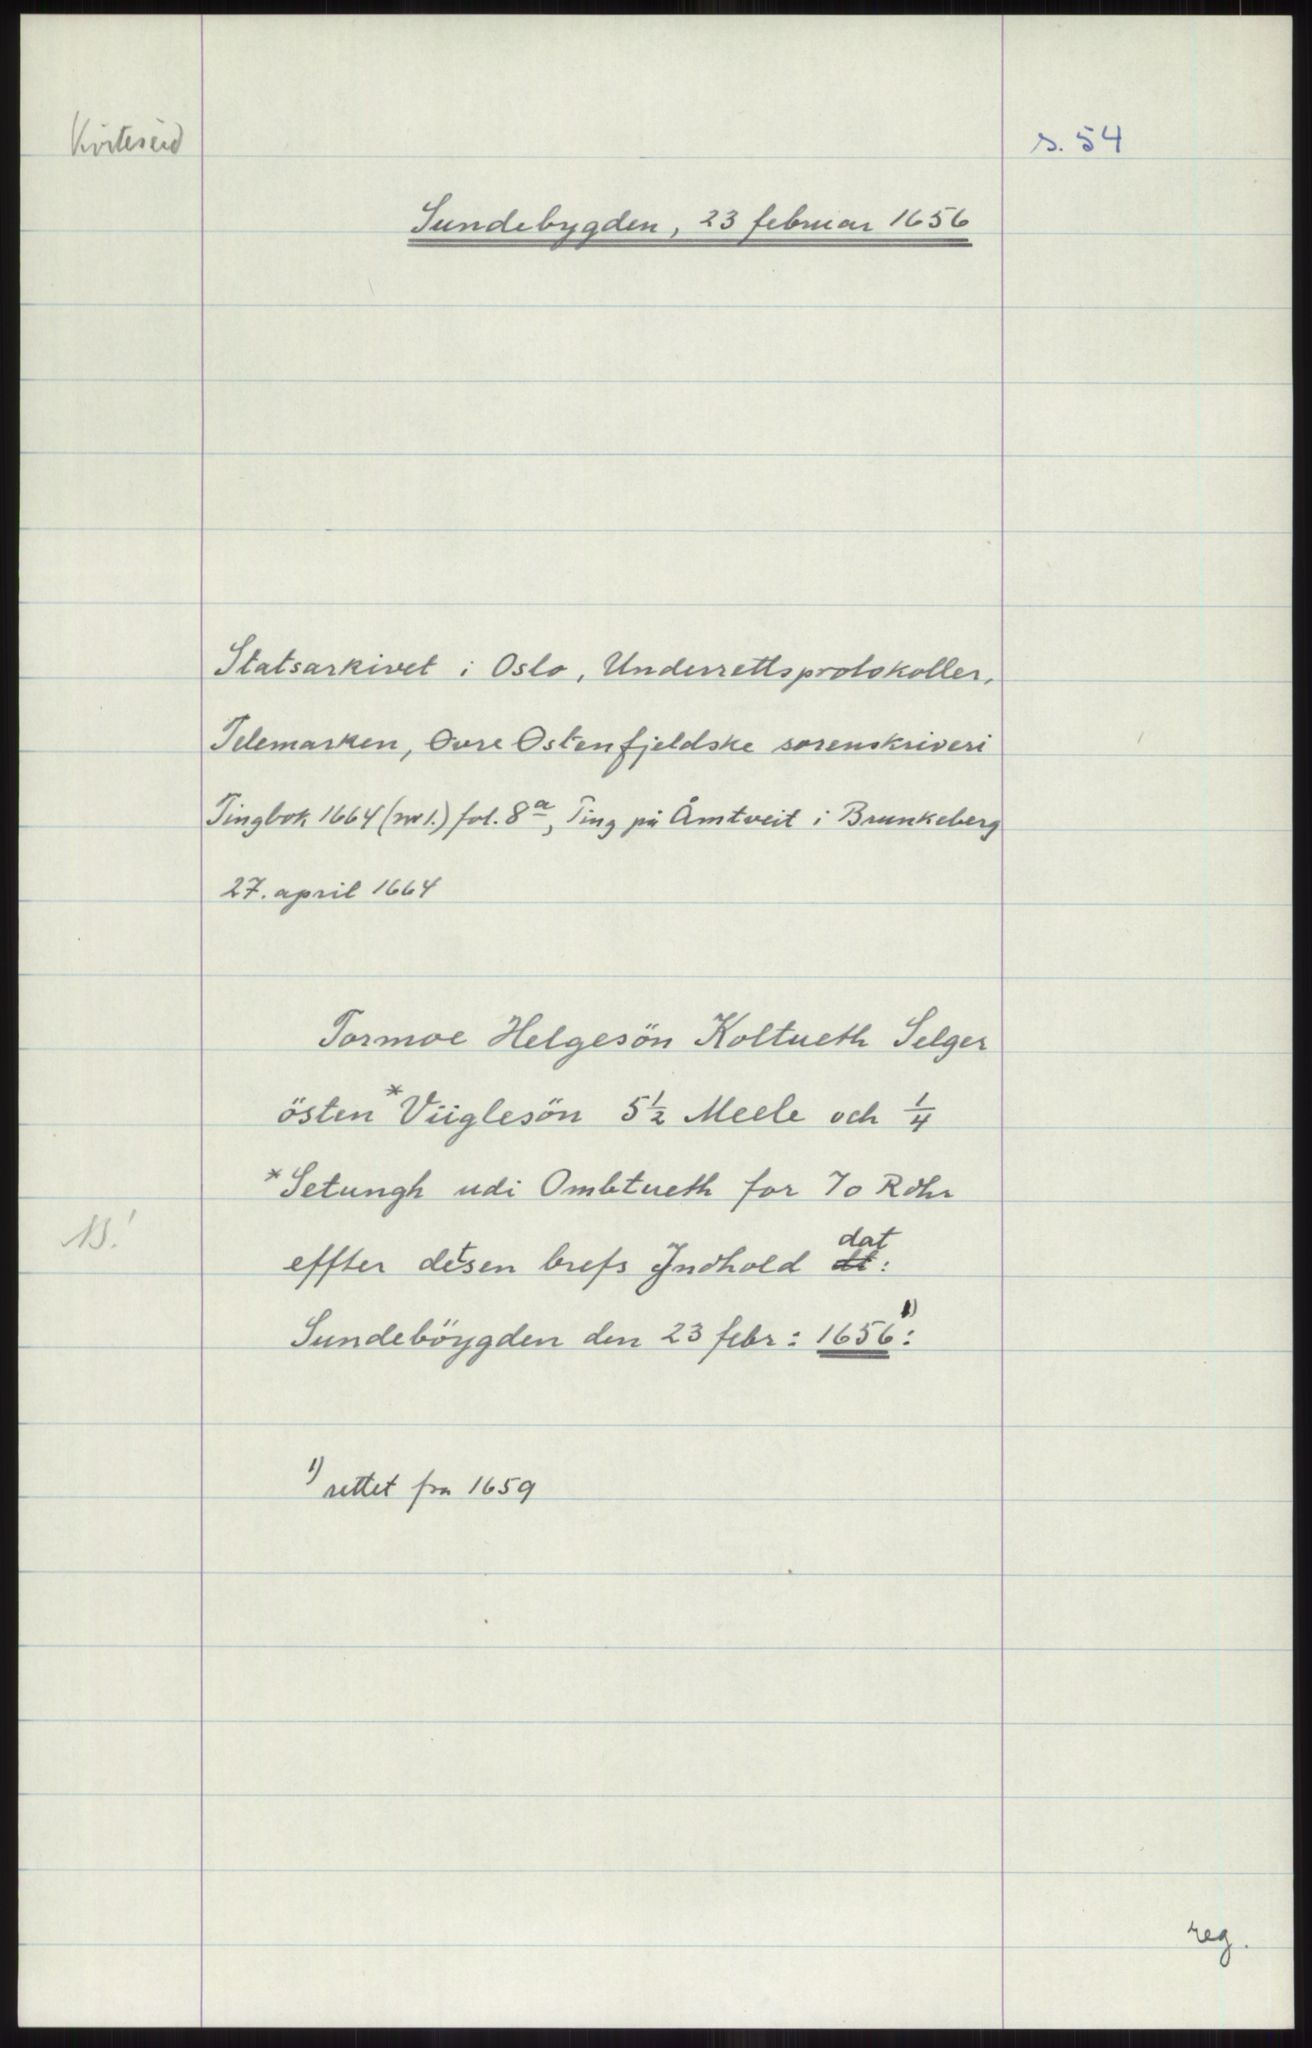 Kviteseid
s. 54
Sundebygden, 23 februar 1656
Statsarkivet i Oslo, Underrettsprotokoller,
Telemarken, Øvre Østenfjeldske sorenskriveri
Tingbok 1664 (nr 1.) fol. 8a, Ting på Åmtveit i Brunkeberg
27. april 1664
Tormoe Helgesön Koltueth Selger
östen *Viiglesön 5½ Meele och ¼
*Setungh udi Ombtueth for 70 Rdhr
effter detsen brefs Jndhold dt: dat
Sundeböygden den 23 febr: 1656 1):
1) rettet fra 1659
reg.